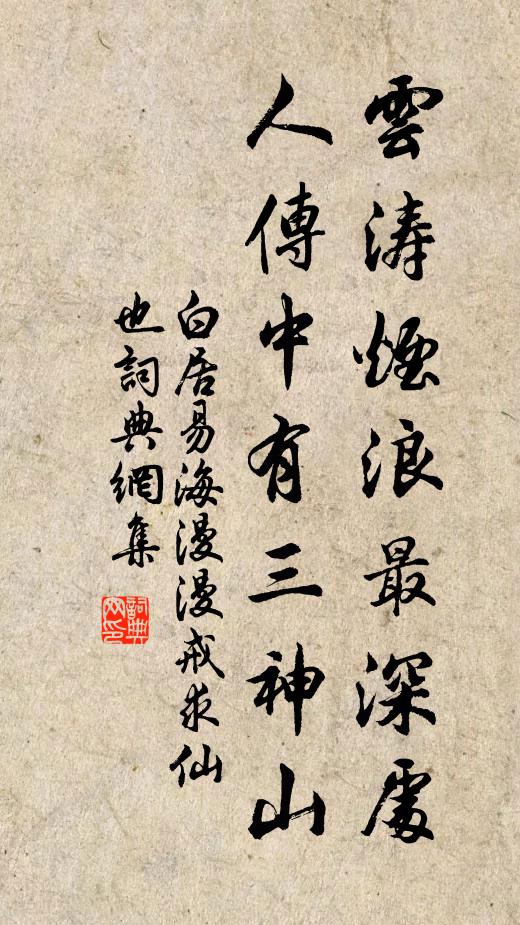 雲濤煙浪最深處
人傳中有三神山
白居易海漫漫戒求仙
也詞典網集
詞典網印